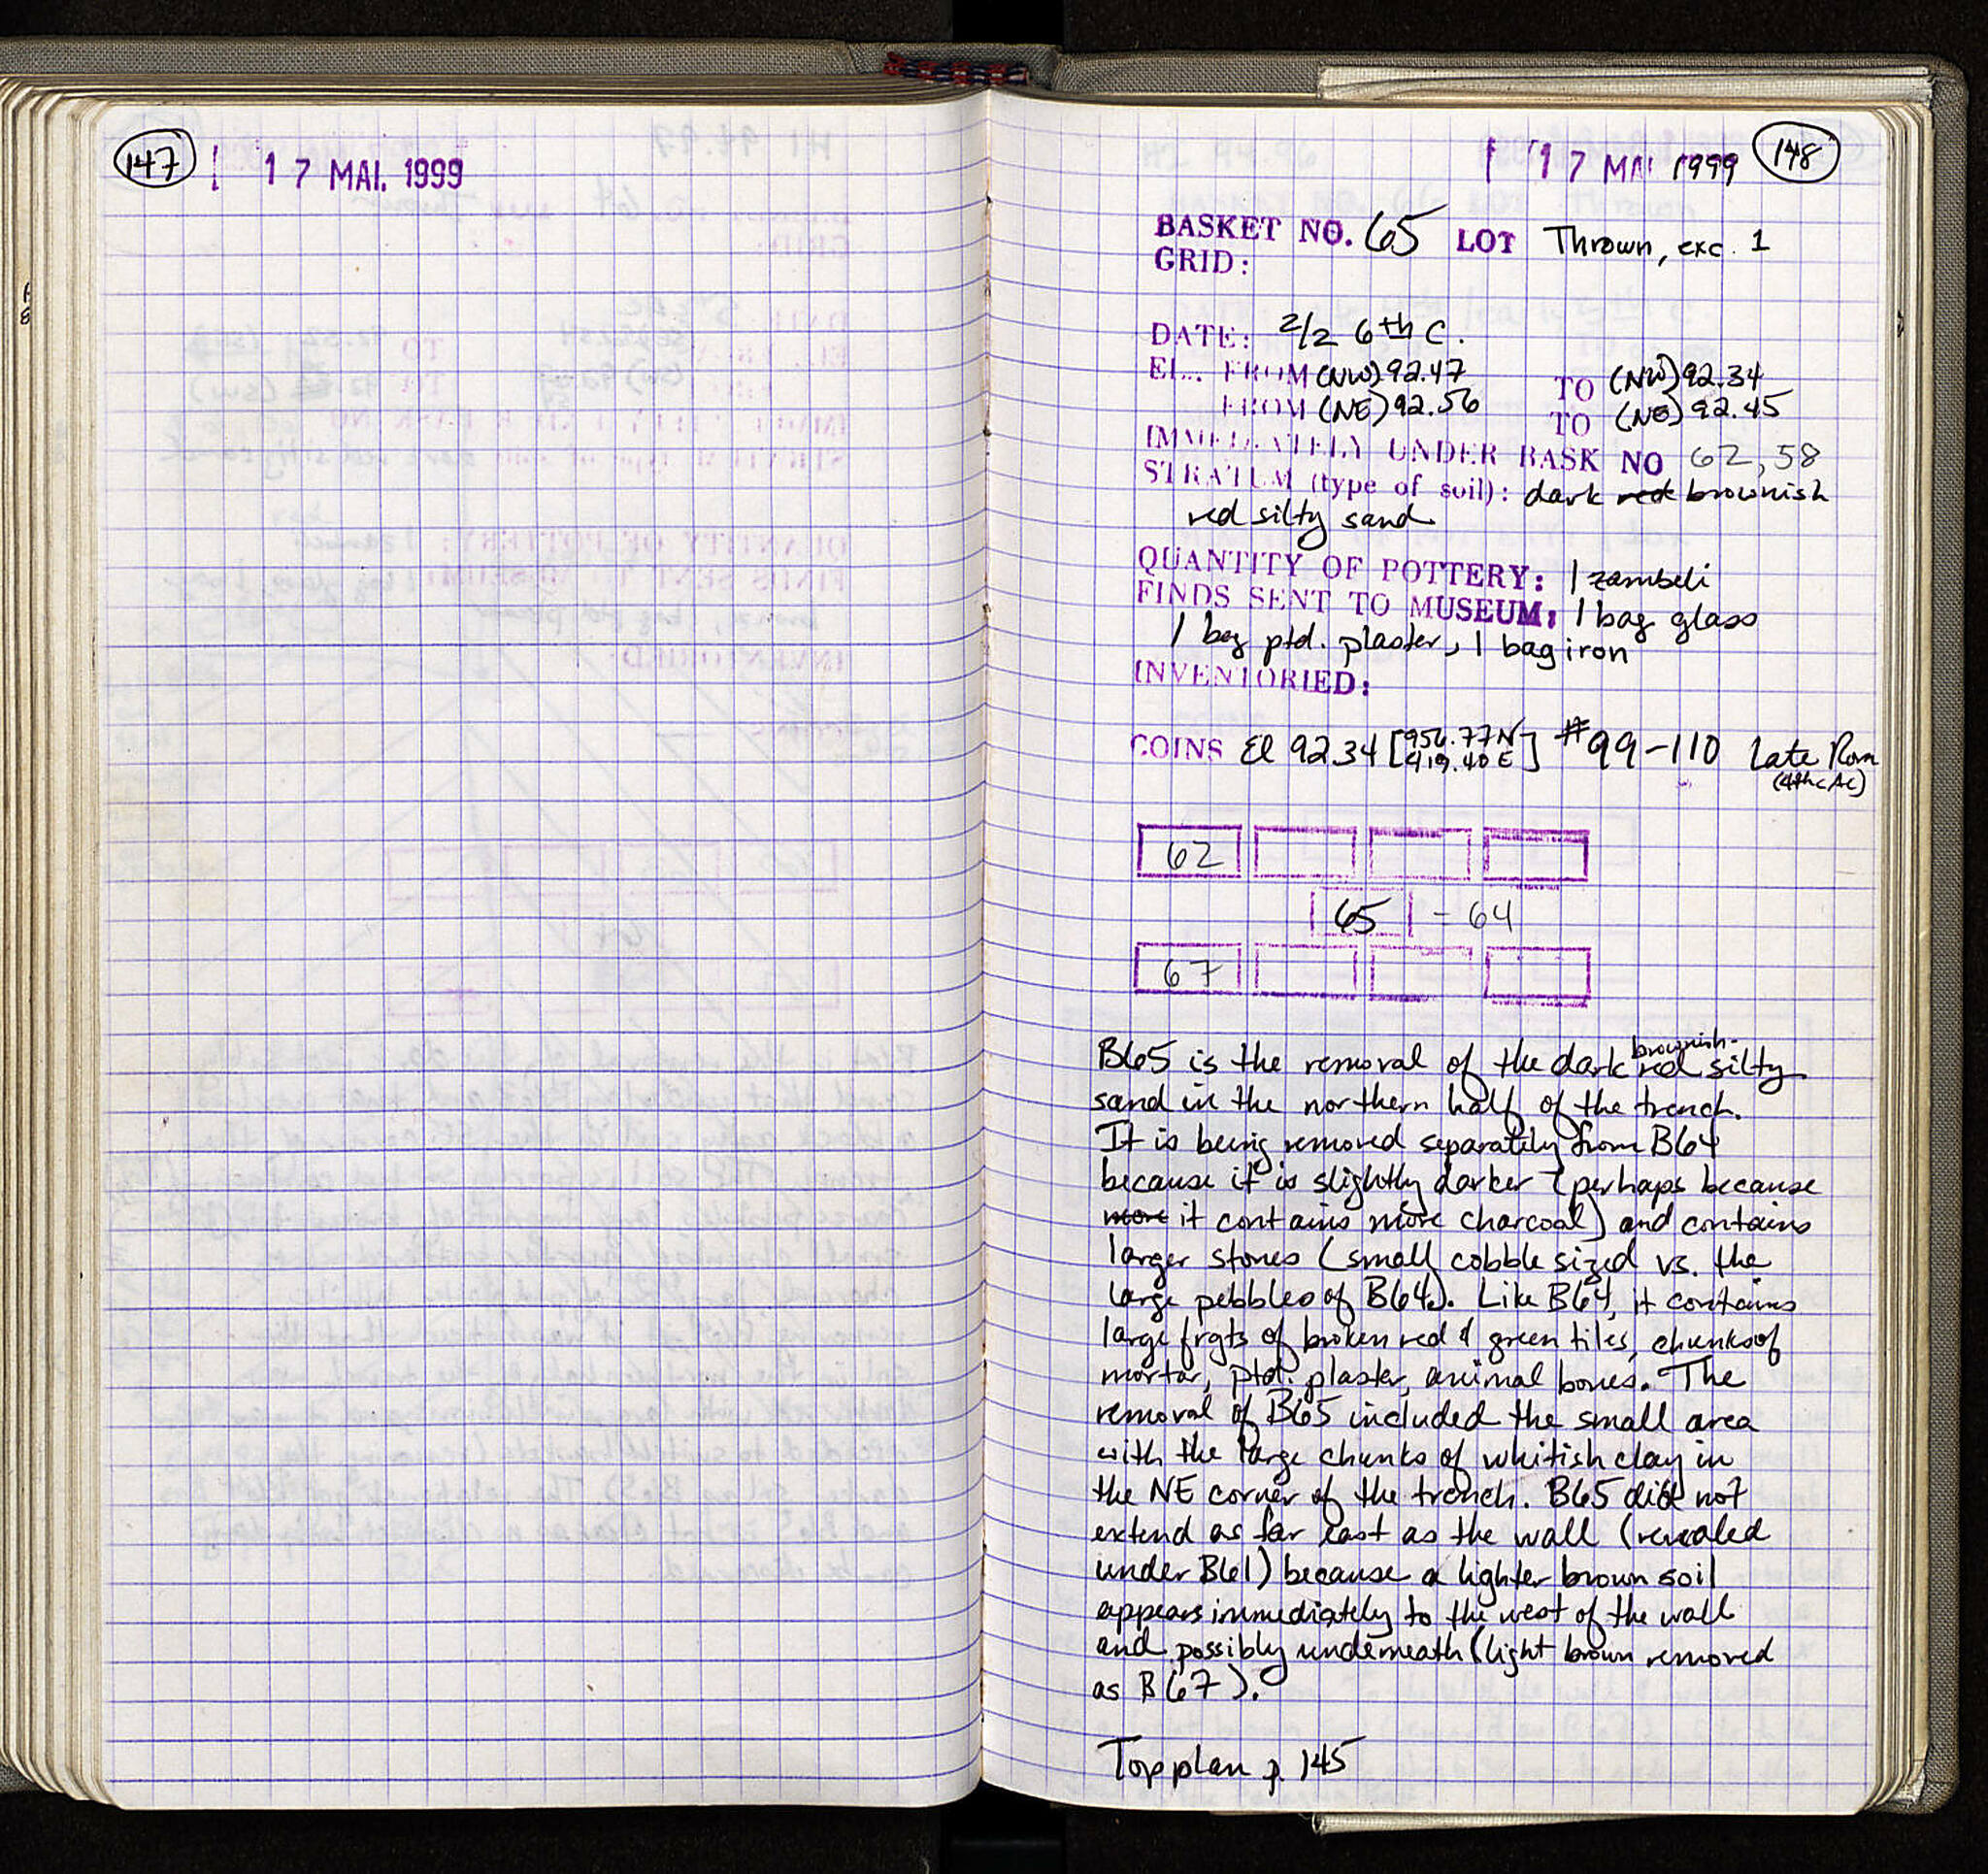 147
17 MAI. 1999
17 MAI 1999
148
BASKET NO. 65 LOT Thrown, exc. 1
GRID:
DATE: 2/2 6th C.
EL. FROM (NW) 92.47 TO (NW) 92.34
FROM (NE) 92.56 TO (NE) 92.45
IMMEDIATELY UNDER BASK NO 62, 58
STRATUM (type of soil): dark red brownish
red silty sand
QUANTITY OF POTTERY: 1 zambeli
FINDS SENT TO MUSEUM: 1 bag glass
1 bag ptd. plaster, 1 bag iron
INVENTORIED:
COINS El 92.34 [956.77N #99-110 Late Rom
419.40E] (4thc AC)
62
65 - 64
67
brownish-
B65 is the removal of the dark red silty
sand in the northern half of the trench.
It is being removed separately from B64
because it is slightly darker (perhaps because
more it contains more charcoal) and contains
larger stones (small cobble sized vs. the
large pebbles of B64). Like B64, it contains
large frgts of broken red & green tiles, chunks of
mortar, ptd. plaster, animal bones. The
removal of B65 included the small area
with the large chunks of whitish clay in
the NE corner of the trench. B65 did not
extend as far east as the wall (revealed
under B61) because a lighter brown soil
appears immediately to the west of the wall
and possibly underneath (light brown removed
as B67).
Top plan p. 145